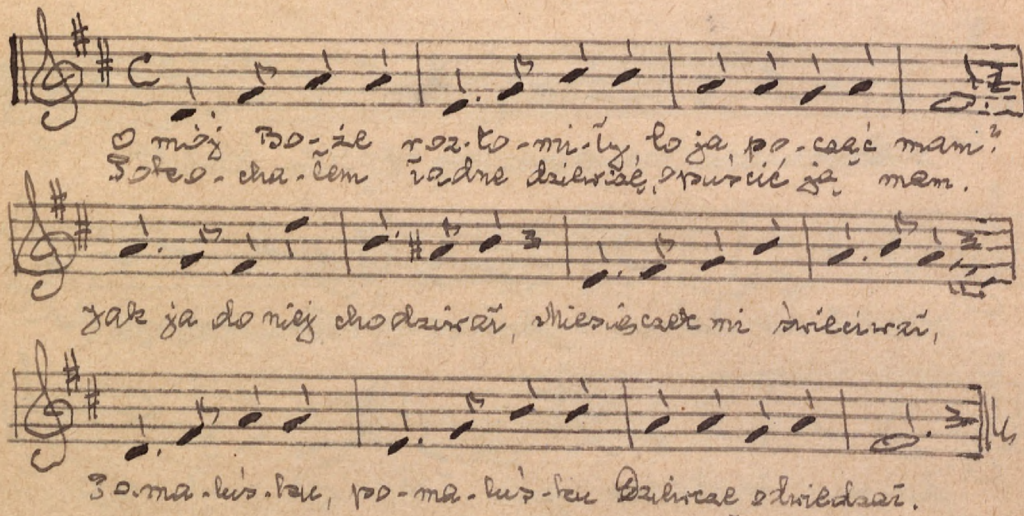 O mój Bo-że roz-to-mi-ły, to ja po-cząć mam?
-cha-łem ładne dziewczę, opuścić ją mam.
Jak ja do niej chodziwał, Miesiączek mi świeciwał,
po-ma-luś-ku Dziewczę odwiedzał.